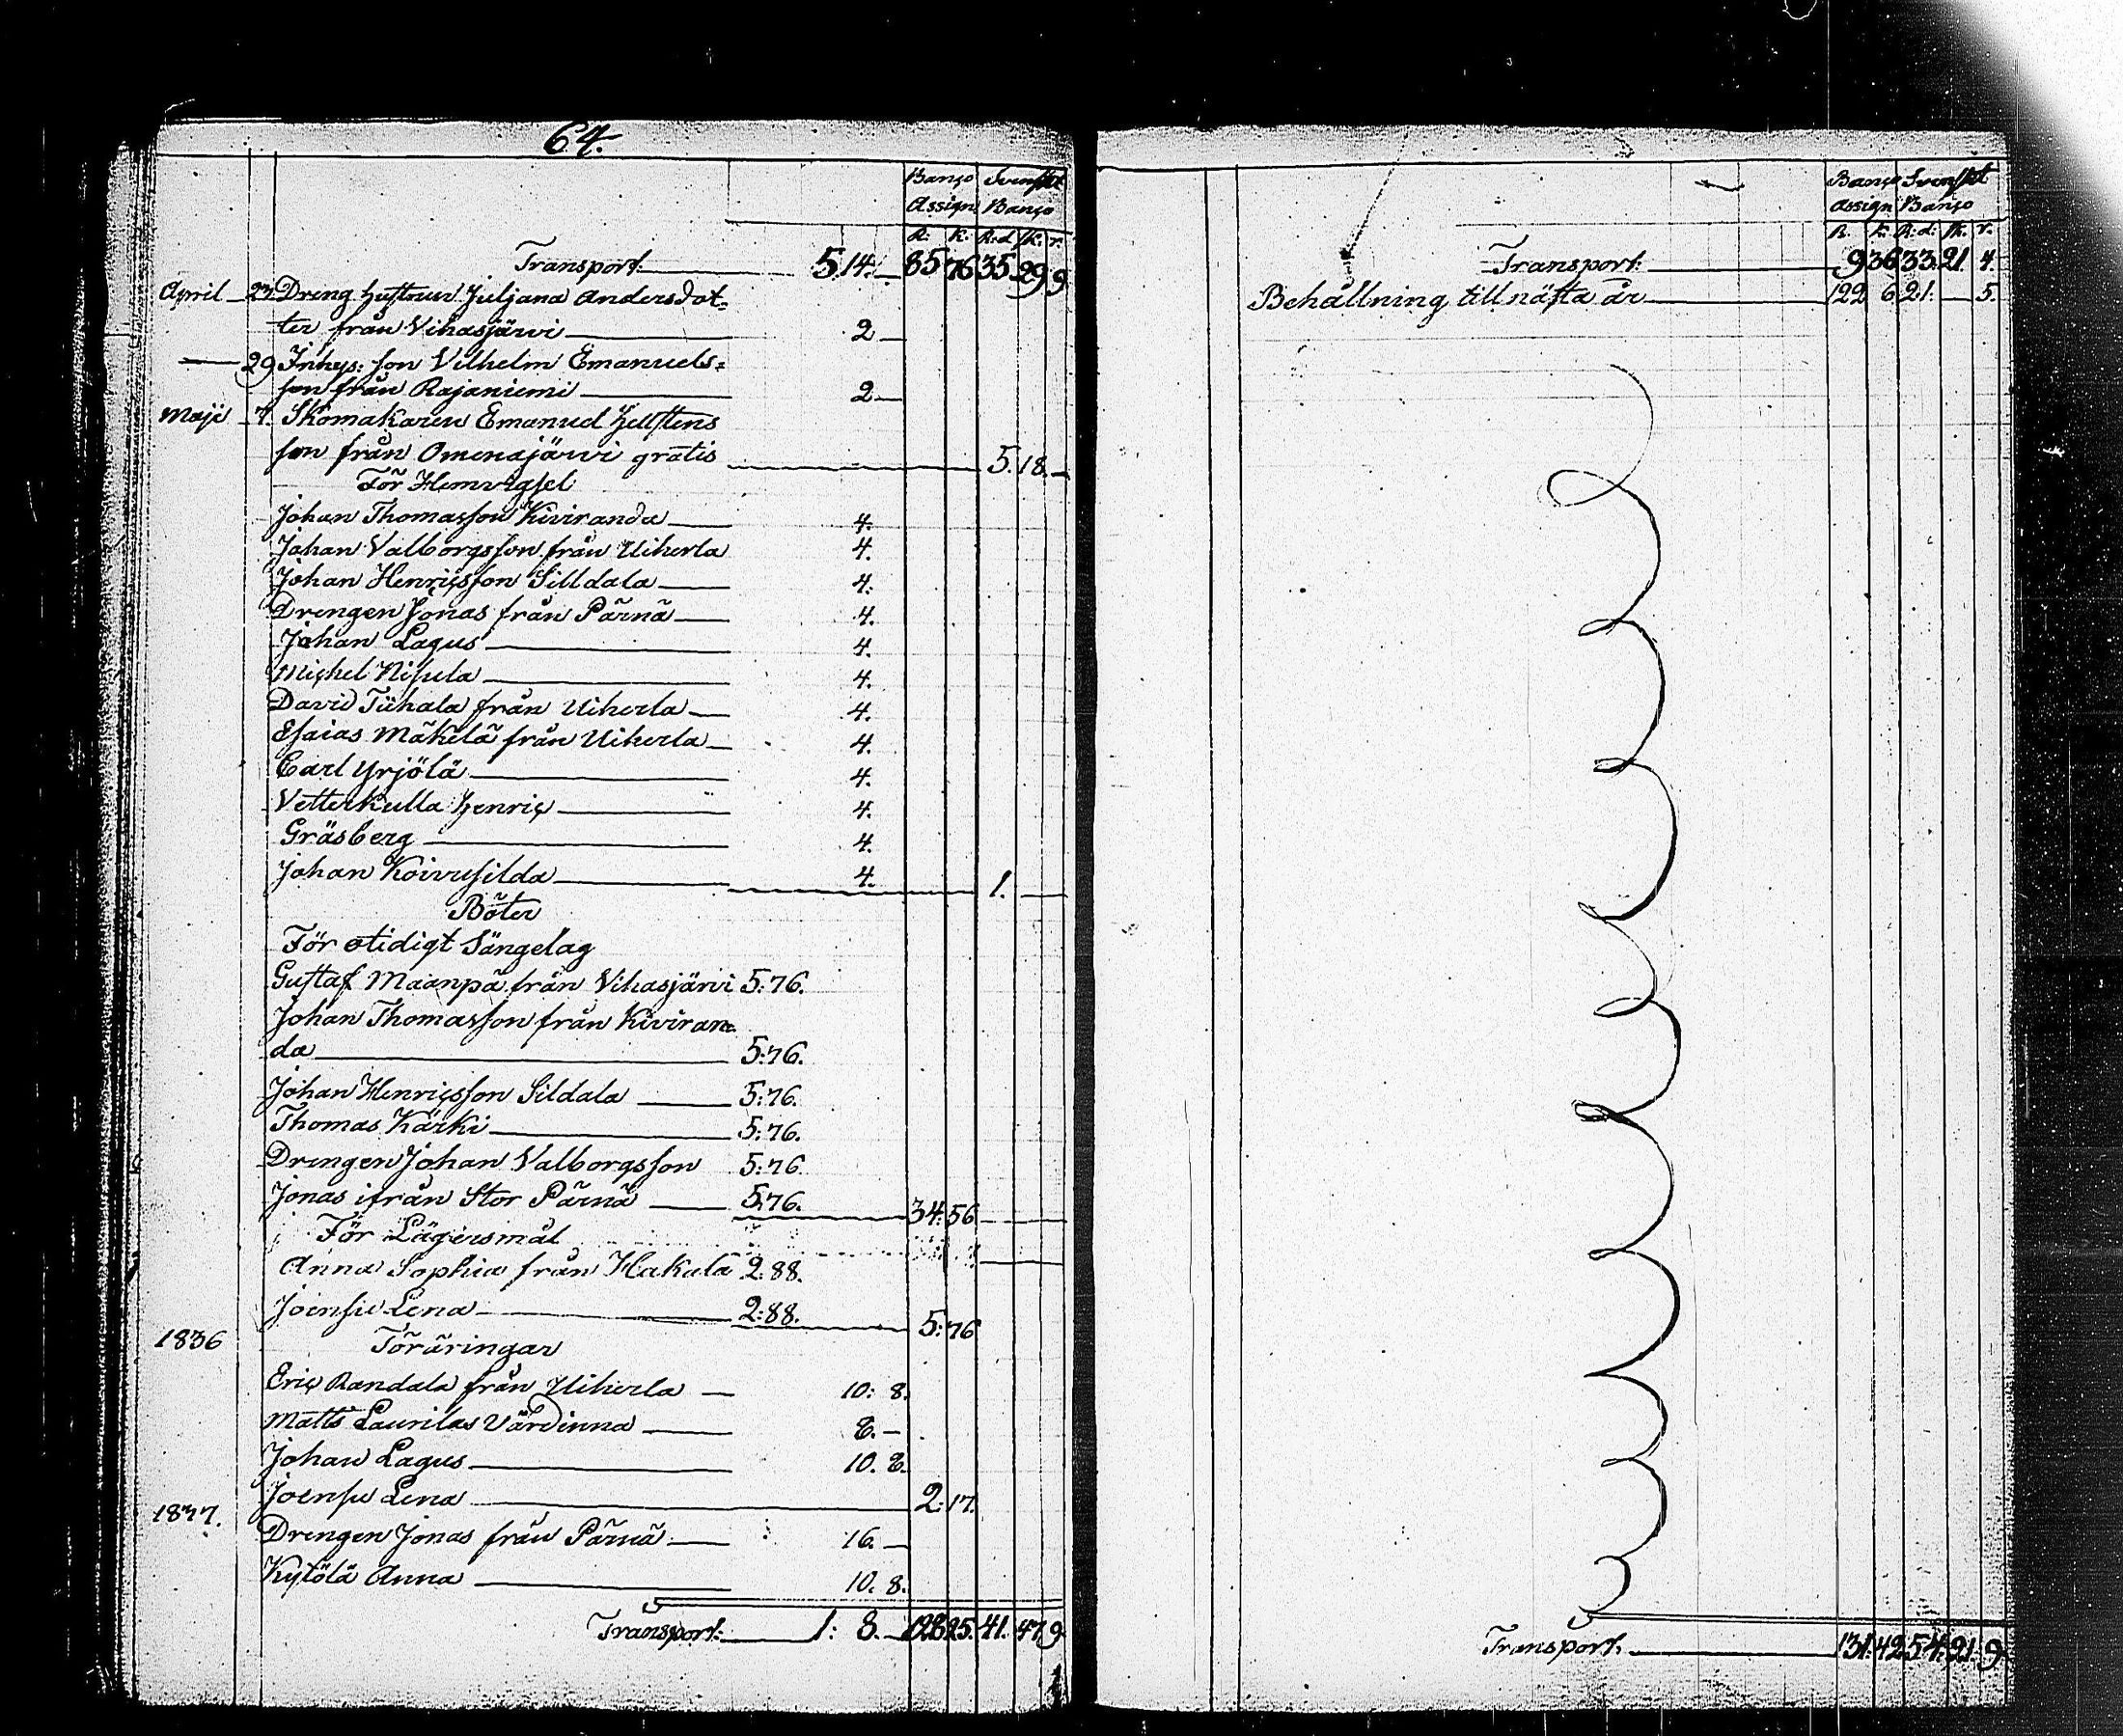 64.
Banço Svenskt
Assign Banço
R: K: R:d. sk. r.
Transport: 5.14. — 85 76 35. 29 9
April 23. Dreng hustrun Juljana Andersdot-
ter från Vihasjärvi 2 —
— 29 Inhys: son Vilhelm Emanuels=
son från Rajaniemi 2 —
Maji 7. Skomakaren Emanuel Hellstens
son från Omenajärvi gratis 5. 18. —
För Hemvigsel
Johan Thomasson Kiviranda 4.
Johan Valborgsson från Uiherla 4.
Johan Henriçsson Silldala 4.
Drengen Jonas från Pärnä 4.
Johan Lagus 4.
Miçhel Nisula 4.
David Tühala från Uiherla 4.
Esaias Mäkelä från Uiherla 4.
Carl Yrjölä 4.
Vetterkulla Henriç 4.
Gräsberg 4.
Johan Koivusilda 4. 1. —
Böter
För otidigt Sängelag
Gustaf Maanpä från Vihasjärvi 5:76.
Johan Thomasson från Kiviran=
da 5:76.
Johan Henriçsson Sildala 5:76.
Thomas Kärki 5:76.
Drengen Johan Valborgsson 5:76
Jonas ifrån Stor Pärnä 5:76. 34:56
För Lägersmål
Anna Sophia från Hakula 2:88.
Joensu Lena 2:88. 5:76
1836 Föräringar
Eriç Randala från Uiherla — 10: 8.
Matts Laurilas Värdinna 8. —
Johan Lagus 10. 8.
Joensu Lena 2:17.
1837. Drengen Jonas från Pärnä 16. —
Kytölä Anna 10. 8.
Transport: 1: 8. — 128 25. 41. 47 9
Banço Svenskt
Assign Banço
R. K. R:d: sk. r.
Transport: 9 36 33. 21. 4.
Behållning till nästa år 122 6 21. — 5.
Transport. 131:42 54. 21. 9